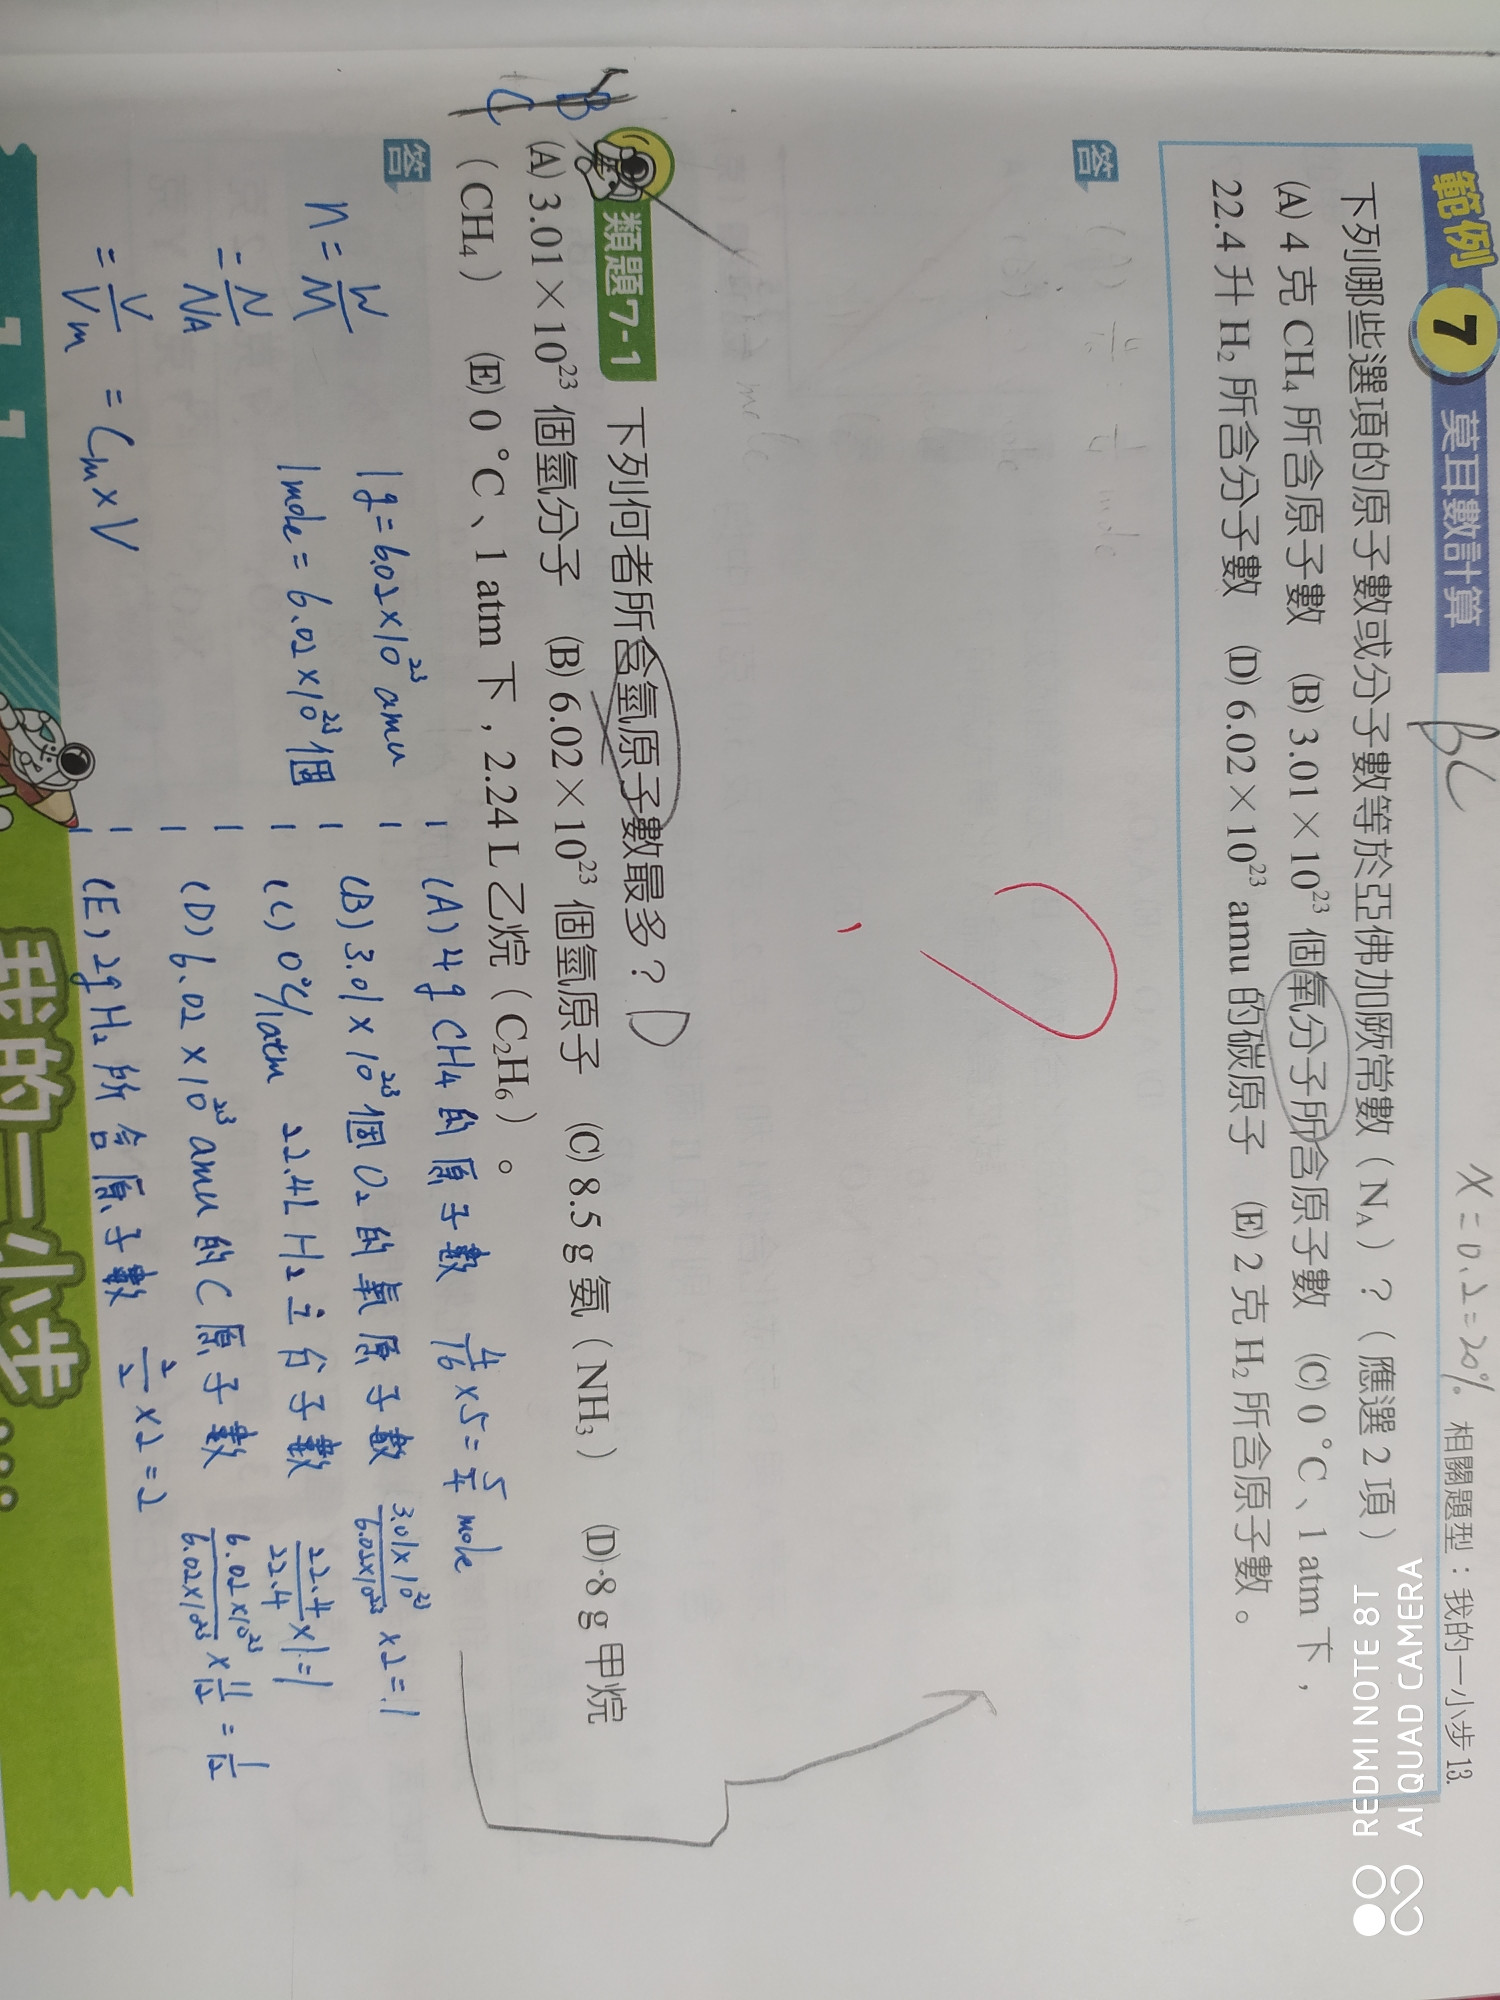 x = 0.2 = 20%
相關題型：我的一小步 13.
範例 7 莫耳數計算
BC
下列哪些選項的原子數或分子數等於亞佛加厥常數（NA）？（應選 2 項）
(A) 4 克 CH4 所含原子數 (B) 3.01×10²³ 個氧分子所含原子數 (C) 0 ℃、1 atm 下，
22.4 升 H2 所含分子數 (D) 6.02×10²³ amu 的碳原子 (E) 2 克 H2 所含原子數。
答
類題7-1 下列何者所含氫原子數最多？D
(A) 3.01×10²³ 個氫分子 (B) 6.02×10²³ 個氫原子 (C) 8.5 g 氨（NH3） (D) 8 g 甲烷
（CH4） (E) 0 ℃、1 atm 下，2.24 L 乙烷（C2H6）。
B
C
答
n = W/M
= N/NA
= V/Vm = Cm×V
1g = 6.02×10²³ amu
1mole = 6.02×10²³個
(A) 4g CH4 的原子數 4/16 ×5 = 5/4 mole
(B) 3.01×10²³個 O2 的氧原子數 3.01×10²³/6.02×10²³ ×2 = 1
(C) 0℃/1atm 22.4L H2 之分子數 22.4/22.4 ×1 = 1
(D) 6.02×10²³ amu 的 C 原子數 6.02×10²³/6.02×10²³ × 1/12 = 1/12
(E) 2g H2 所含原子數 2/2 ×2 = 2
我的一小步…
REDMI NOTE 8T
AI QUAD CAMERA